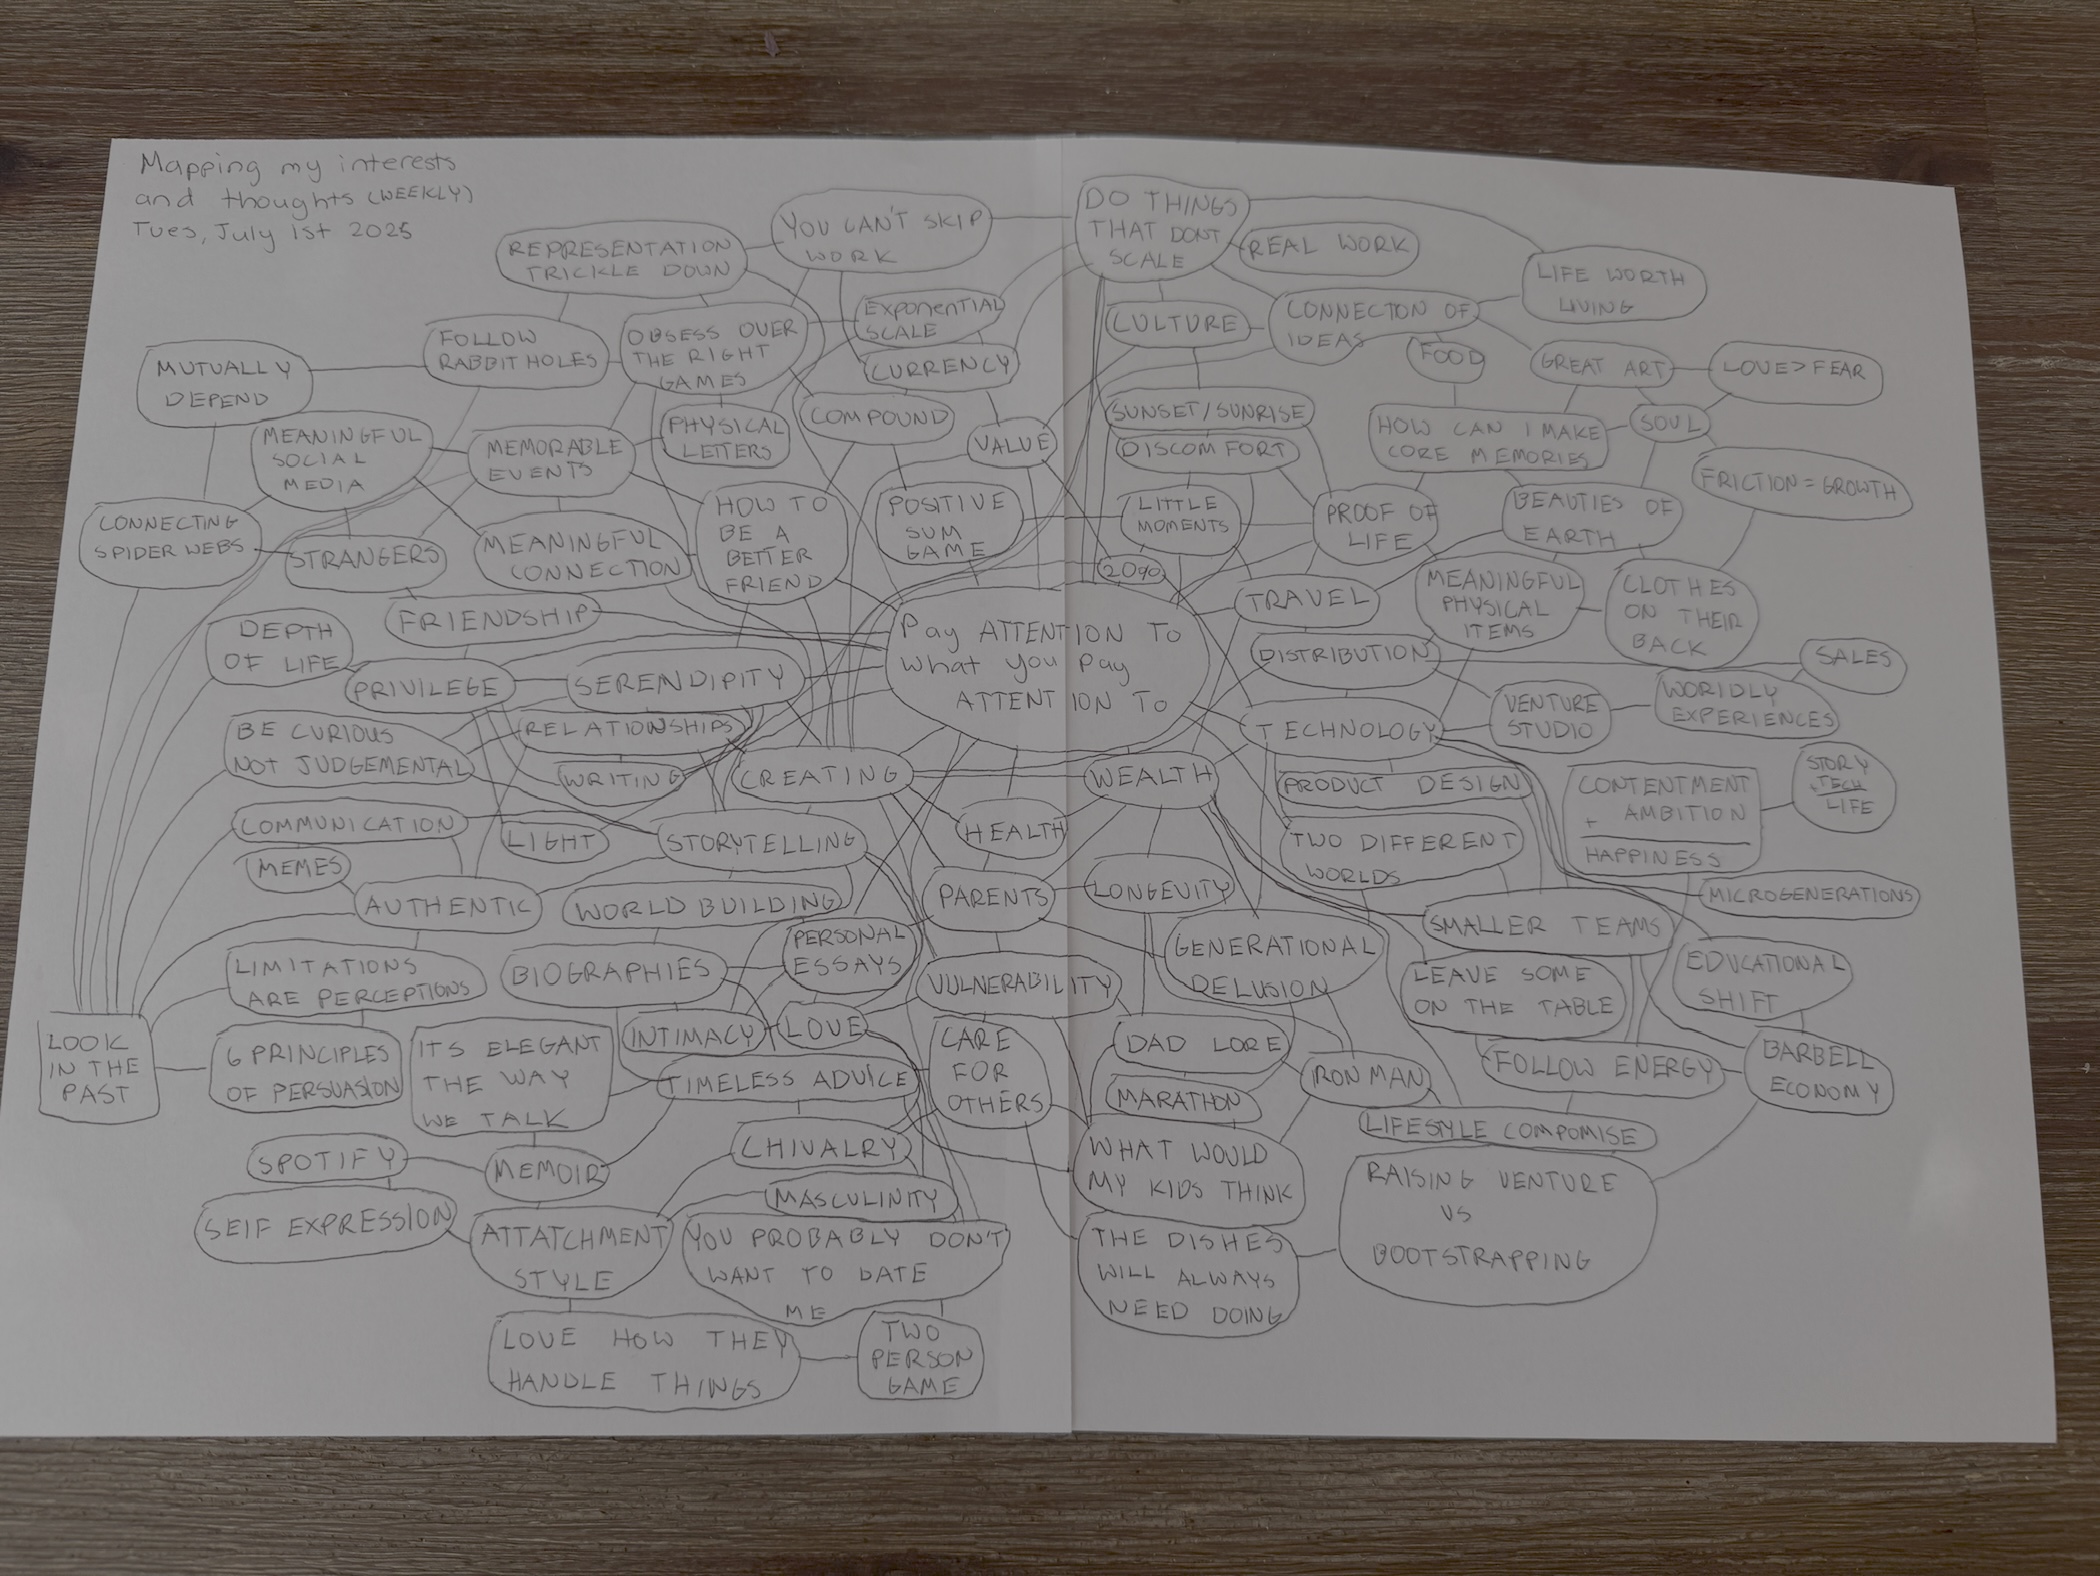 Mapping my interests
and thoughts (WEEKLY)
Tues, July 1st 2025
YOU CAN'T SKIP
WORK
DO THINGS
THAT DONT
SCALE
REAL WORK
REPRESENTATION
TRICKLE DOWN
LIFE WORTH
LIVING
EXPONENTIAL
SCALE
CULTURE
CONNECTION OF
IDEAS
FOLLOW
RABBIT HOLES
OBSESS OVER
THE RIGHT
GAMES
CURRENCY
FOOD
GREAT ART
LOVE>FEAR
MUTUALLY
DEPEND
PHYSICAL
LETTERS
COMPOUND
VALUE
SUNSET/SUNRISE
DISCOMFORT
HOW CAN I MAKE
CORE MEMORIES
SOUL
MEANINGFUL
SOCIAL
MEDIA
MEMORABLE
EVENTS
FRICTION = GROWTH
HOW TO
BE A
BETTER
FRIEND
POSITIVE
SUM
GAME
LITTLE
MOMENTS
PROOF OF
LIFE
BEAUTIES OF
EARTH
CONNECTING
SPIDER WEBS
STRANGERS
MEANINGFUL
CONNECTION
20%
TRAVEL
MEANINGFUL
PHYSICAL
ITEMS
CLOTHES
ON THEIR
BACK
FRIENDSHIP
DEPTH
OF LIFE
Pay ATTENTION TO
What You Pay
ATTENTION TO
DISTRIBUTION
SALES
PRIVILEGE
SERENDIPITY
VENTURE
STUDIO
WORLDLY
EXPERIENCES
RELATIONSHIPS
TECHNOLOGY
BE CURIOUS
NOT JUDGEMENTAL
WRITING
CREATING
WEALTH
PRODUCT DESIGN
CONTENTMENT
+ AMBITION
HAPPINESS
STORY
+ TECH
LIFE
COMMUNICATION
LIGHT
STORYTELLING
HEALTH
TWO DIFFERENT
WORLDS
MEMES
AUTHENTIC
WORLD BUILDING
PARENTS
LONGEVITY
MICROGENERATIONS
SMALLER TEAMS
PERSONAL
ESSAYS
GENERATIONAL
DELUSION
LIMITATIONS
ARE PERCEPTIONS
BIOGRAPHIES
VULNERABILITY
LEAVE SOME
ON THE TABLE
EDUCATIONAL
SHIFT
LOOK
IN THE
PAST
6 PRINCIPLES
OF PERSUASION
ITS ELEGANT
THE WAY
WE TALK
INTIMACY
LOVE
CARE
FOR
OTHERS
DAD LORE
FOLLOW ENERGY
BARBELL
ECONOMY
TIMELESS ADVICE
MARATHON
IRON MAN
LIFESTYLE COMPOMISE
SPOTIFY
MEMOIR
CHIVALRY
WHAT WOULD
MY KIDS THINK
RAISING VENTURE
VS
BOOTSTRAPPING
MASCULINITY
SELF EXPRESSION
ATTATCHMENT
STYLE
YOU PROBABLY DON'T
WANT TO DATE
ME
THE DISHES
WILL ALWAYS
NEED DOING
LOVE HOW THEY
HANDLE THINGS
TWO
PERSON
GAME